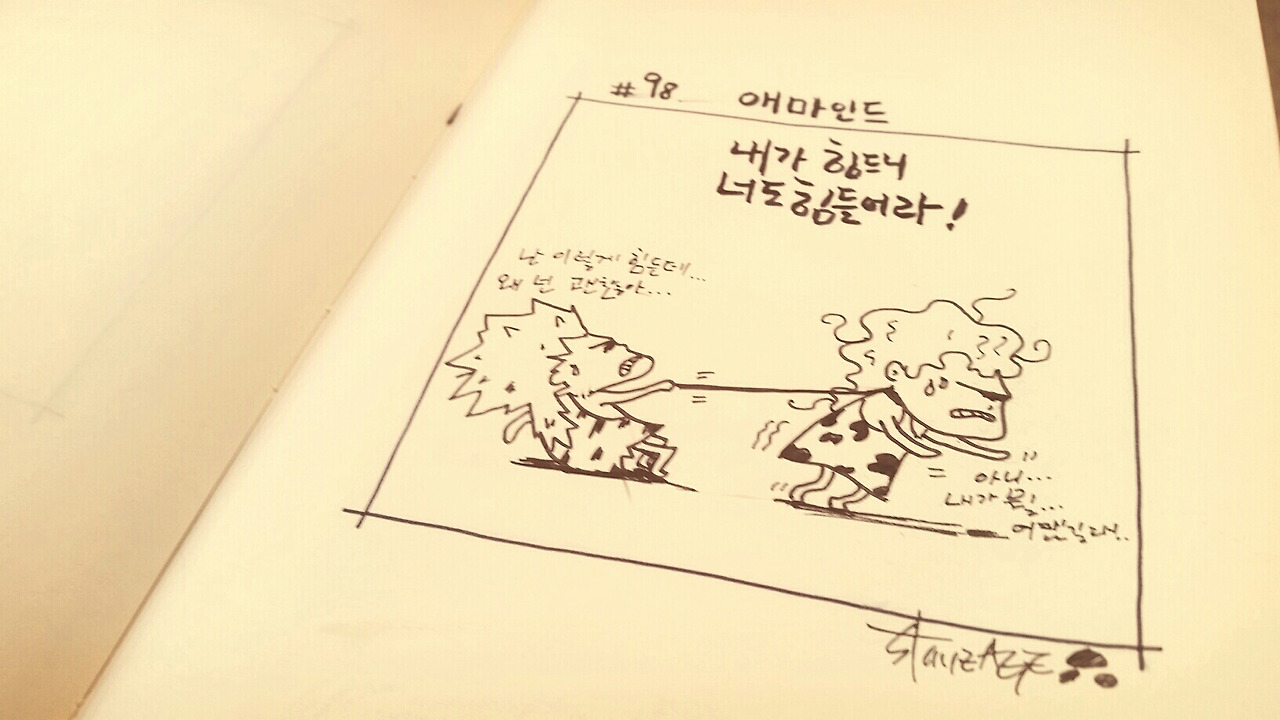 #98 애마인드
내가 힘드니
너도 힘들어라!
난 이렇게 힘든데...
왜 넌 괜찮아...
아니...
내가 뭘...